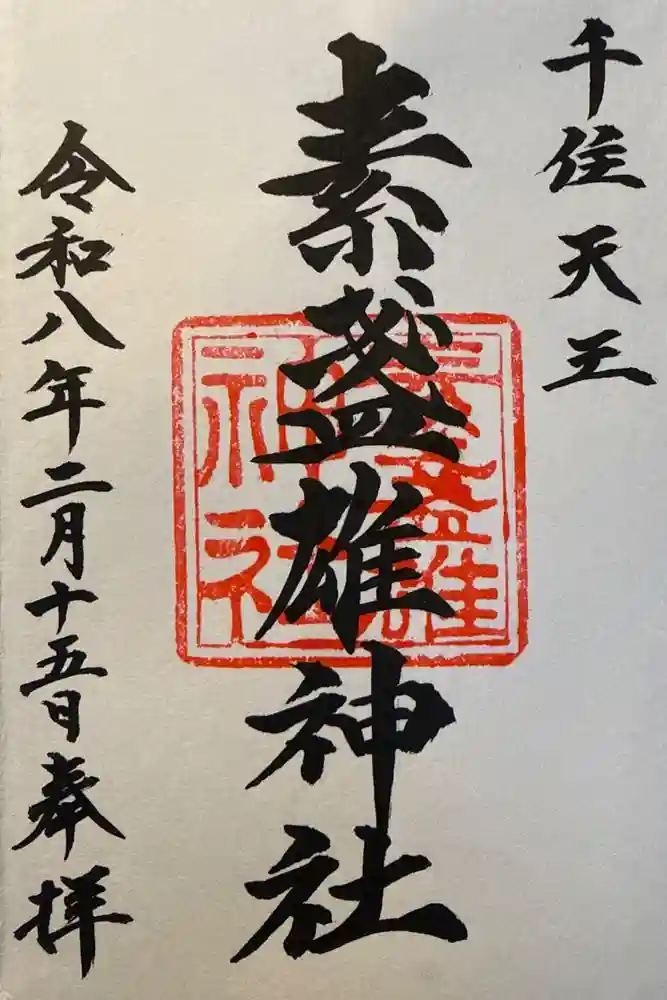 千住天王
素盞雄神社
素盞雄神社
令和八年二月十五日奉拝